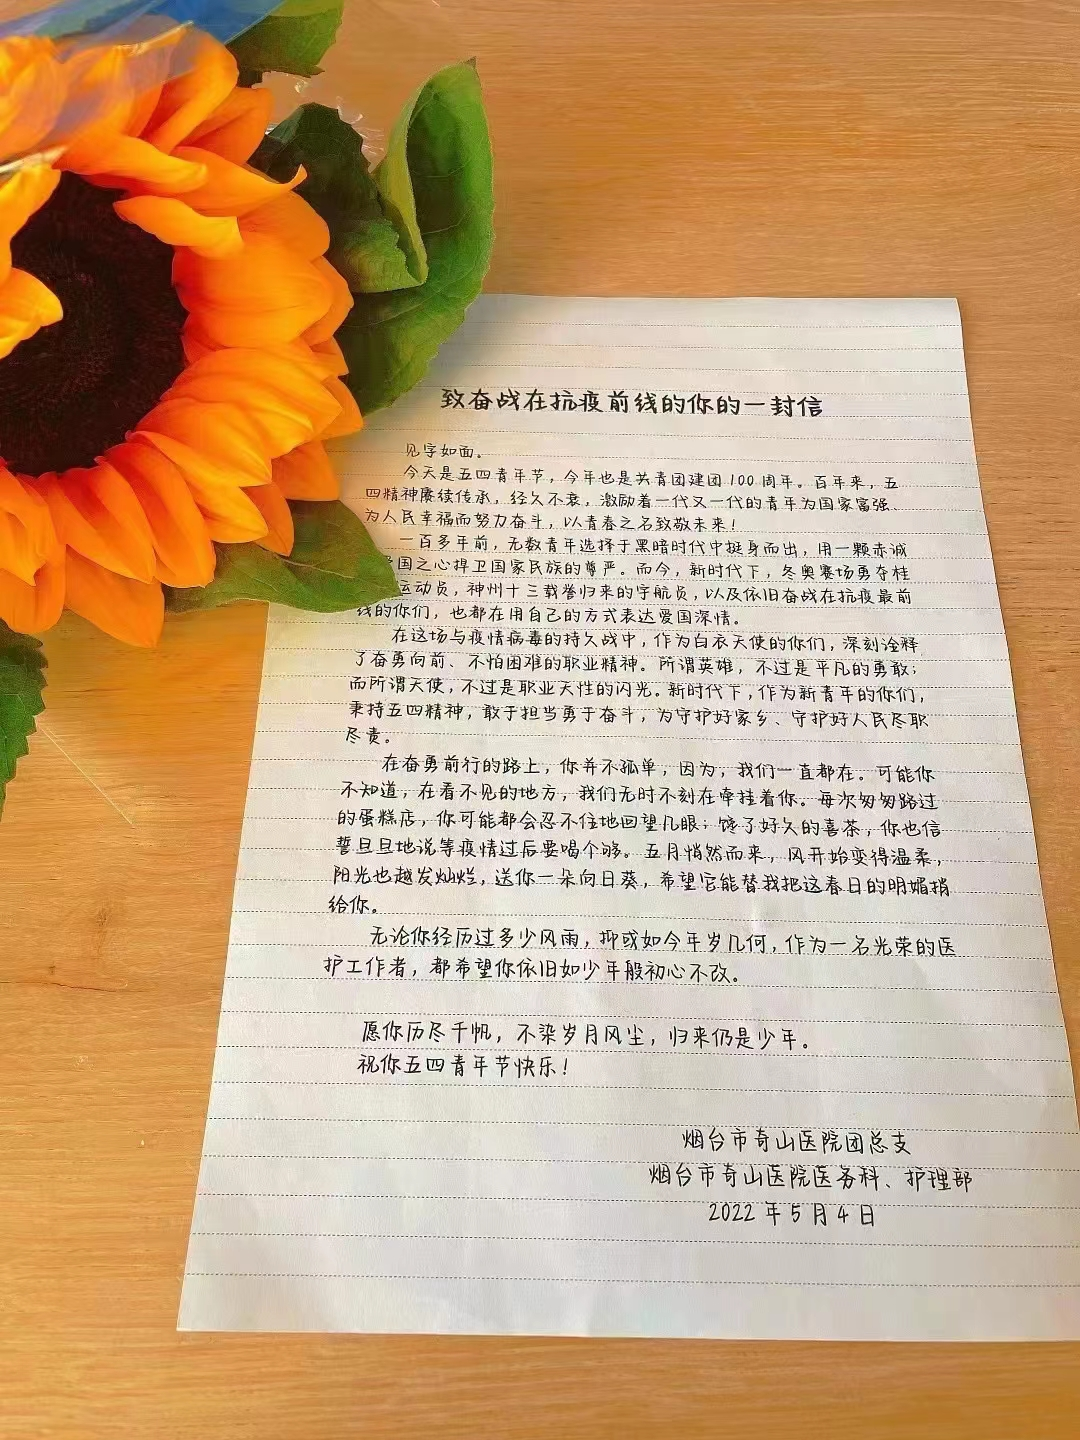 致奋战在抗疫前线的你的一封信
见字如面。
今天是五四青年节，今年也是共青团建团100周年。百年来，五
四精神赓续传承，经久不衰，激励着一代又一代的青年为国家富强、
为人民幸福而努力奋斗，以青春之名致敬未来！
一百多年前，无数青年选择于黑暗时代中挺身而出，用一颗赤诚
国之心捍卫国家民族的尊严。而今，新时代下，冬奥赛场勇夺桂
运动员，神州十三载誉归来的宇航员，以及依旧奋战在抗疫最前
线的你们，也都在用自己的方式表达爱国深情。
在这场与疫情病毒的持久战中，作为白衣天使的你们，深刻诠释
了奋勇向前、不怕困难的职业精神。所谓英雄，不过是平凡的勇敢；
而所谓天使，不过是职业天性的闪光。新时代下，作为新青年的你们，
秉持五四精神，敢于担当勇于奋斗，为守护好家乡、守护好人民尽职
尽责。
在奋勇前行的路上，你并不孤单，因为，我们一直都在。可能你
不知道，在看不见的地方，我们无时不刻在牵挂着你。每次匆匆路过
的蛋糕店，你可能都会忍不住地回望几眼；馋了好久的喜茶，你也信
誓旦旦地说等疫情过后要喝个够。五月悄然而来，风开始变得温柔，
阳光也越发灿烂，送你一朵向日葵，希望它能替我把这春日的明媚捎
给你。
无论你经历过多少风雨，抑或如今年岁几何，作为一名光荣的医
护工作者，都希望你依旧如少年般初心不改。
愿你历尽千帆，不染岁月风尘，归来仍是少年。
祝你五四青年节快乐！
烟台市奇山医院团总支
烟台市奇山医院医务科、护理部
2022年5月4日